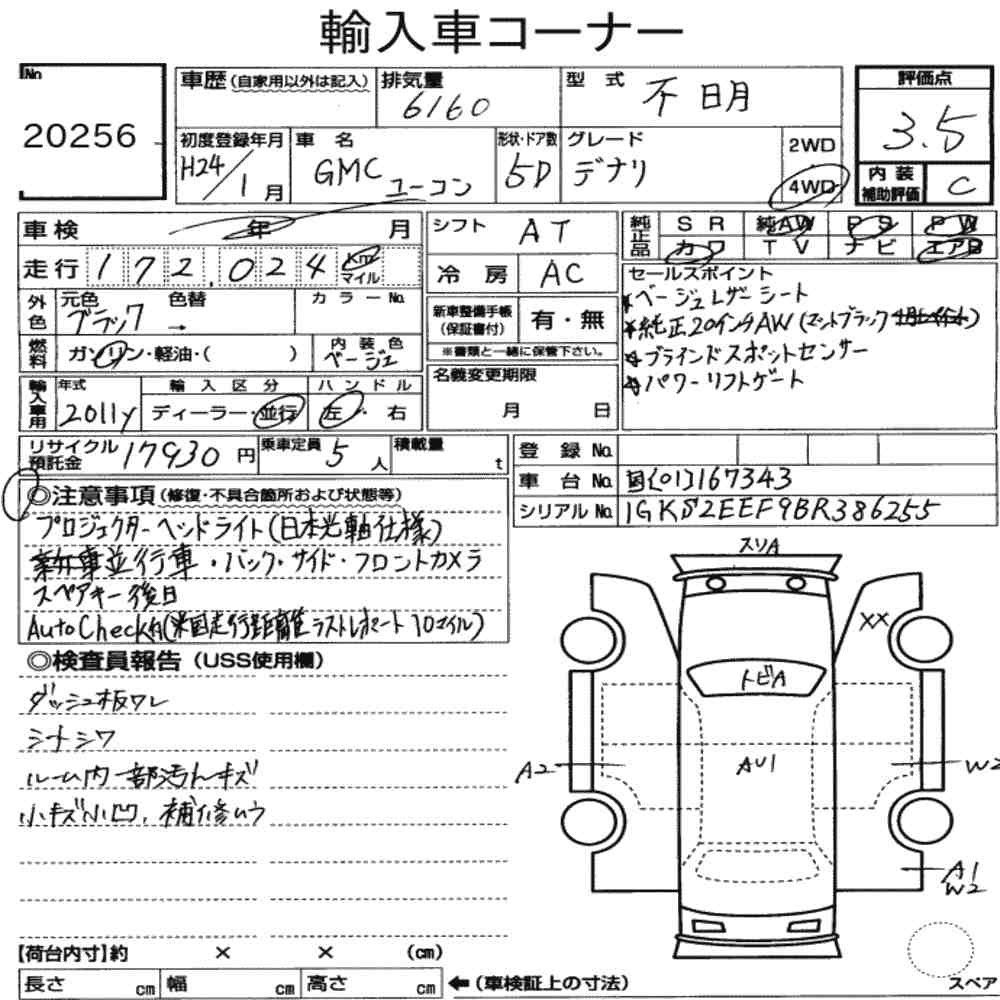 輸入車コーナー
No
20256
車歴(自家用以外は記入)
排気量
6160
型式
不明
評価点
3.5
初度登録年月
H24/1月
車名
GMC ユーコン
形状・ドア数
5D
グレード
デナリ
2WD
4WD
内装補助評価
C
車検 年 月
シフト
AT
純正品
SR 純AW PS PW
カワ TV ナビ エアB
走行
172,024
Km
マイル
冷房
AC
セールスポイント
ベージュレザーシート
純正20インチAW(マットブラック
ブラインドスポットセンサー
パワーリフトゲート
外色
元色
ブラック
色替
→
カラーNo.
新車整備手帳(保証書付)
有・無
※書類と一緒に保管下さい。
燃料
ガソリン・軽油・( )
内装色
ベージュ
名義変更期限
月 日
輸入車用
年式
2011y
輸入区分
ディーラー・並行
ハンドル
左・右
リサイクル預託金
17930円
乗車定員
5人
積載量
t
登録No.
車台No.
国(01)167343
シリアルNo.
1GKS2EEF9BR386255
◎注意事項(修復・不具合箇所および状態等)
プロジェクターヘッドライト(日本光軸仕様)
並行車・バック・サイド・フロントカメラ
スペアキー後日
AutoCheck有(米国走行距離ラストレポート10マイル)
◎検査員報告(USS使用欄)
ダッシュ板ワレ
シートシワ
ルーム内一部汚れキズ
小キズ小凹、補修ムラ
スリA
XX
トビA
AU1
A2
W2
A1
W2
【荷台内寸】約 × × (cm)
長さ cm 幅 cm 高さ cm
←(車検証上の寸法)
スペア